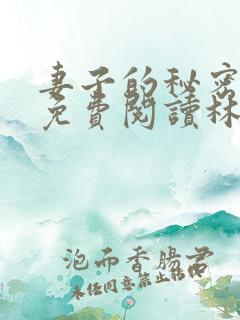 妻子的秘密
免費閱讀林
泡而香腸君
未任同意禁止转